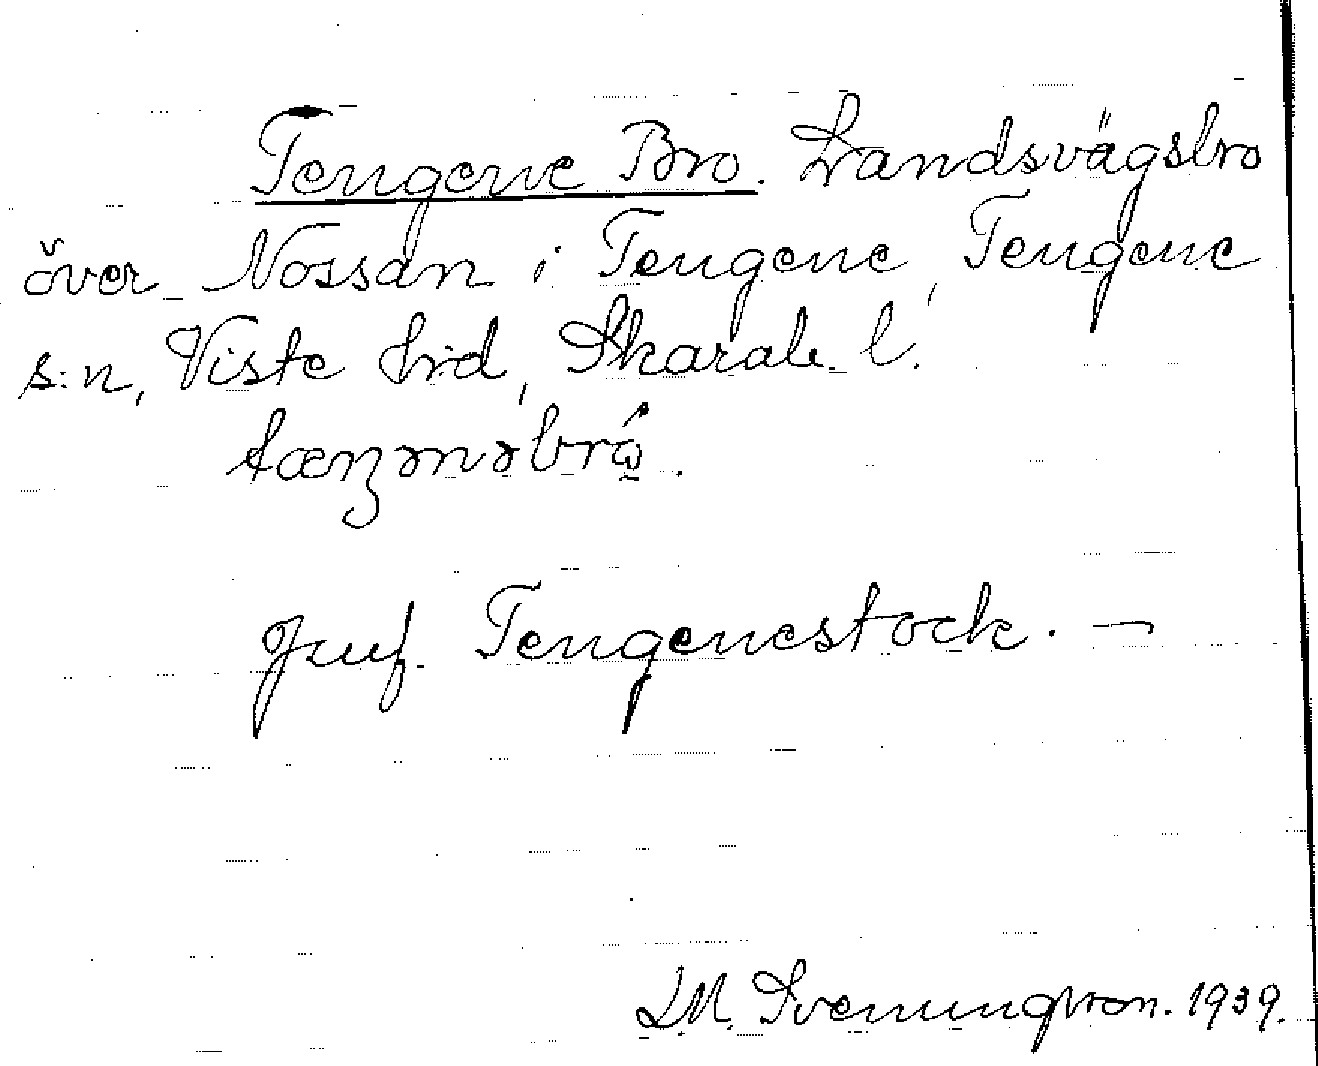 Tengene Bro. Landsvägsbro
över Nossan i Tengene, Tengene
s:n, Viste hrd, Skarab. l.
Jmf. Tengenestock. —
LM. Svenungsson. 1939.